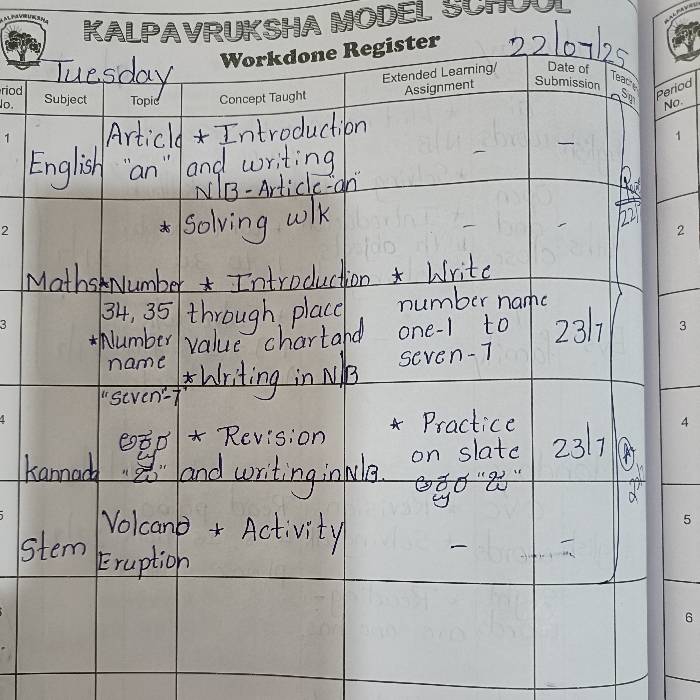 KALPAVRUKSHA MODEL SCHOOL
Workdone Register
Tuesday 22/07/25
Period No. Subject Topic Concept Taught Extended Learning/ Assignment Date of Submission Teacher Sign
1 English Article "an" * Introduction and writing N/B - Article-"an" – –
2 * Solving w/k – –
3 Maths *Number 34, 35 * Introduction through place value chart and * Write number name one-1 to seven-7 23/7
*Number name "seven-7" *Writing in N/B
4 Kannada ಅಕ್ಷರ * Revision and writing in N/B. * Practice on slate ಅಕ್ಷರ 23/7
5 Stem Volcano Eruption * Activity – –
Period No.
1
2
3
4
5
6